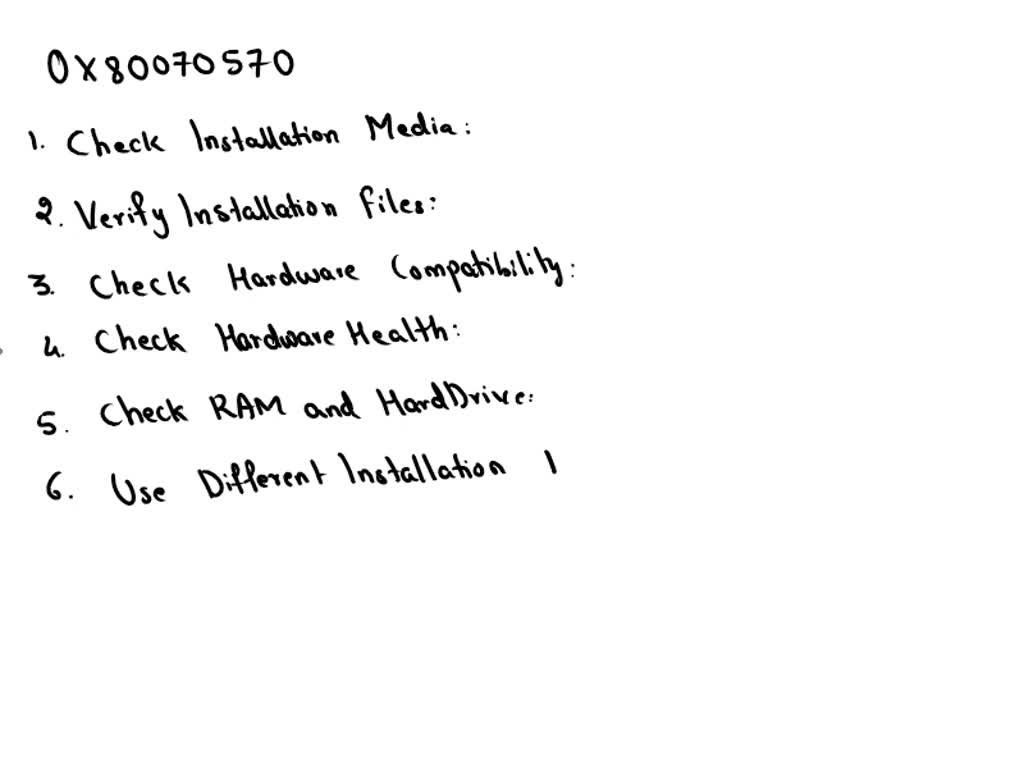 0X80070570
1. Check Installation Media:
2. Verify Installation files:
3. Check Hardware Compatibility:
4. Check Hardware Health:
5. Check RAM and HardDrive:
6. Use Different Installation